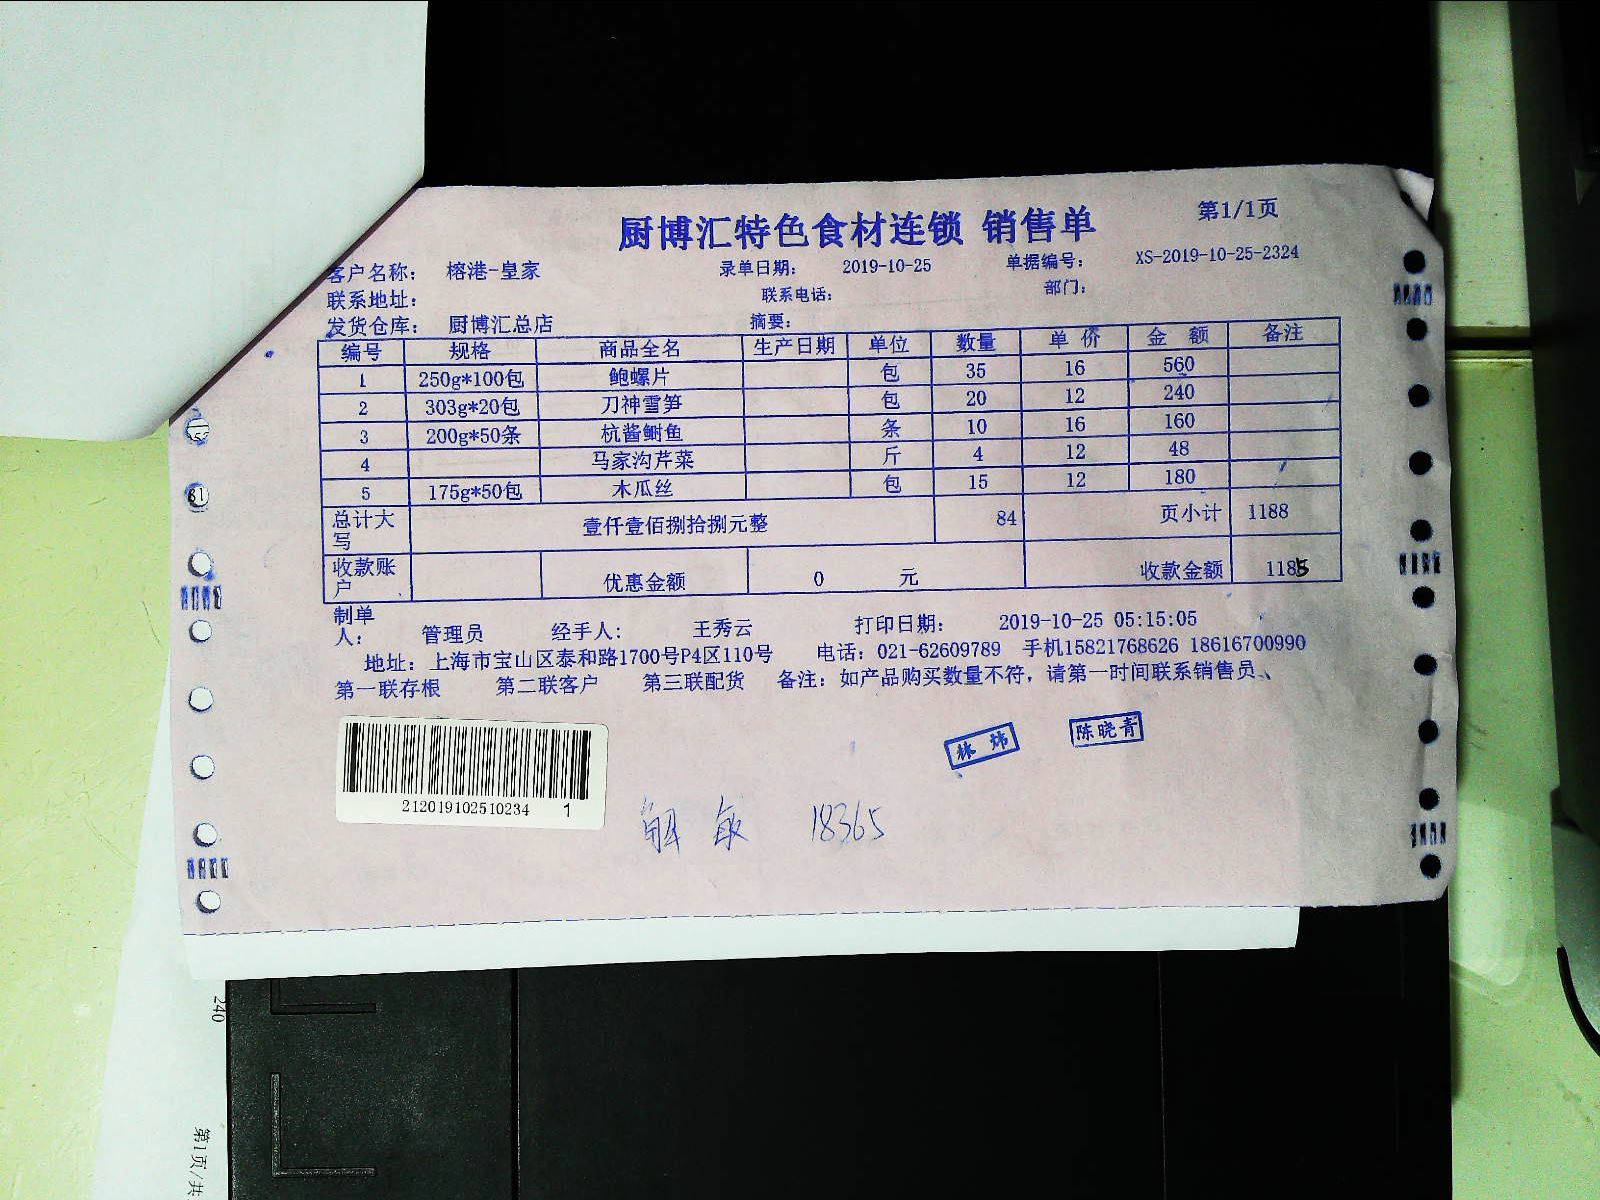 厨博汇特色食材连锁 销售单
第1/1页
客户名称: 榕港-皇家 录单日期: 2019-10-25 单据编号: XS-2019-10-25-2324
联系地址: 联系电话: 部门:
发货仓库: 厨博汇总店 摘要:
编号 规格 商品全名 生产日期 单位 数量 单价 金额 备注
1 250g*100包 鲍螺片 包 35 16 560
2 303g*20包 刀神雪笋 包 20 12 240
3 200g*50条 杭酱鲥鱼 条 10 16 160
4 马家沟芹菜 斤 4 12 48
5 175g*50包 木瓜丝 包 15 12 180
总计大写 壹仟壹佰捌拾捌元整 84 页小计 1188
收款账户 优惠金额 0 元 收款金额 1185
制单人: 管理员 经手人: 王秀云 打印日期: 2019-10-25 05:15:05
地址: 上海市宝山区泰和路1700号P4区110号 电话: 021-62609789 手机15821768626 18616700990
第一联存根 第二联客户 第三联配货 备注: 如产品购买数量不符, 请第一时间联系销售员、
林炜 陈晓青
212019102510234 1
18365
240
第1页/共